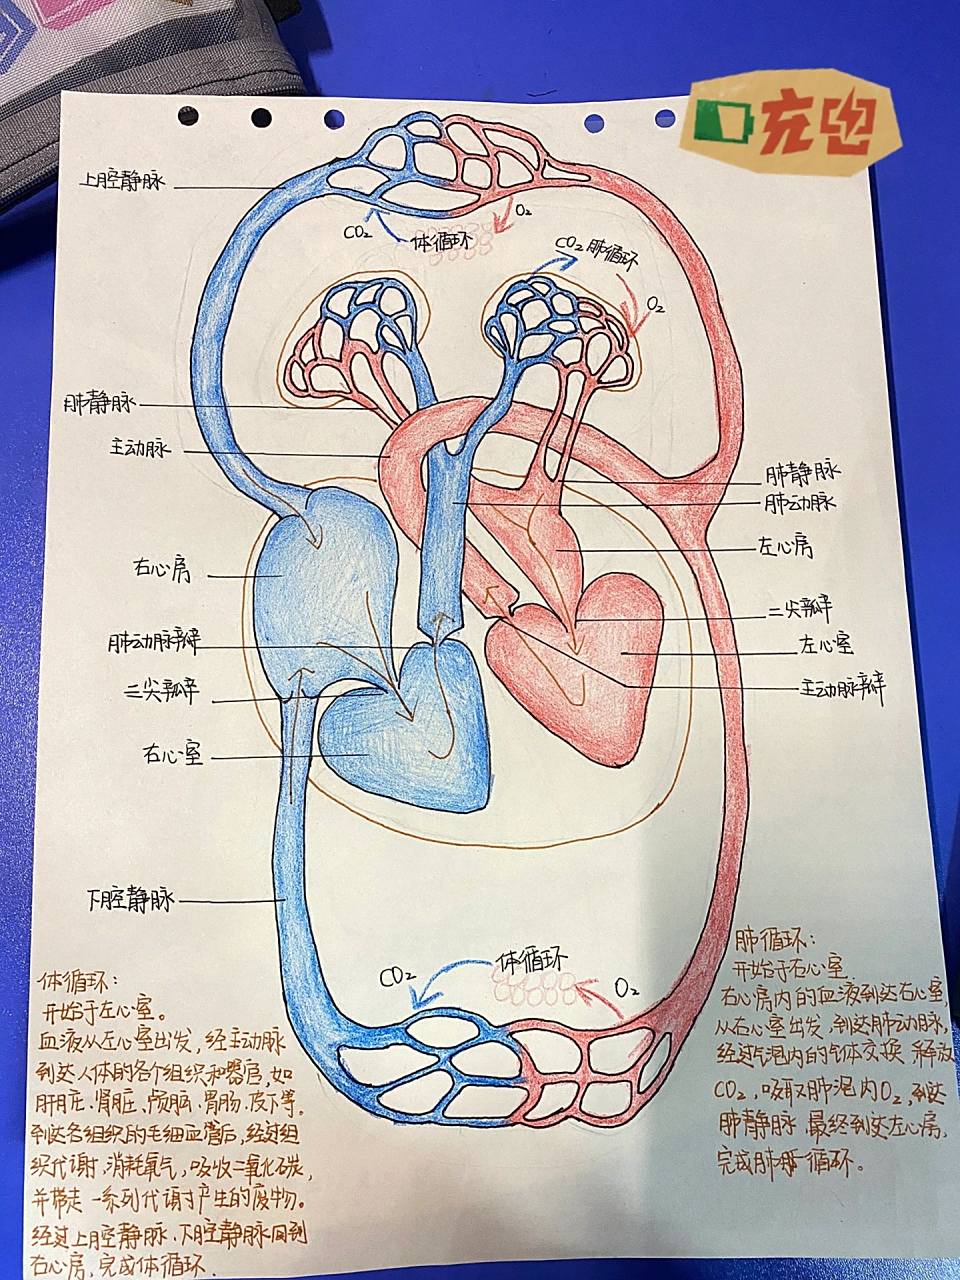 充电
上腔静脉
CO₂
体循环
O₂
CO₂
肺循环
O₂
肺静脉
主动脉
肺静脉
肺动脉
左心房
右心房
二尖瓣
肺动脉瓣
左心室
三尖瓣
主动脉瓣
右心室
下腔静脉
CO₂
体循环
O₂
体循环:
开始于左心室。
血液从左心室出发,经主动脉
到达人体的各个组织和器官,如
肝脏、肾脏、颅脑、胃肠、皮下等。
到达各组织的毛细血管后,经过组
织代谢,消耗氧气,吸收二氧化碳,
并带走一系列代谢产生的废物。
经过上腔静脉、下腔静脉回到
右心房,完成体循环.
肺循环:
开始于右心室.
右心房内的血液到达右心室,
从右心室出发,到达肺动脉,
经过气泡内的气体交换 释放
CO₂,吸取肺泡内O₂,到达
肺静脉,最终到达左心房,
完成肺循环。